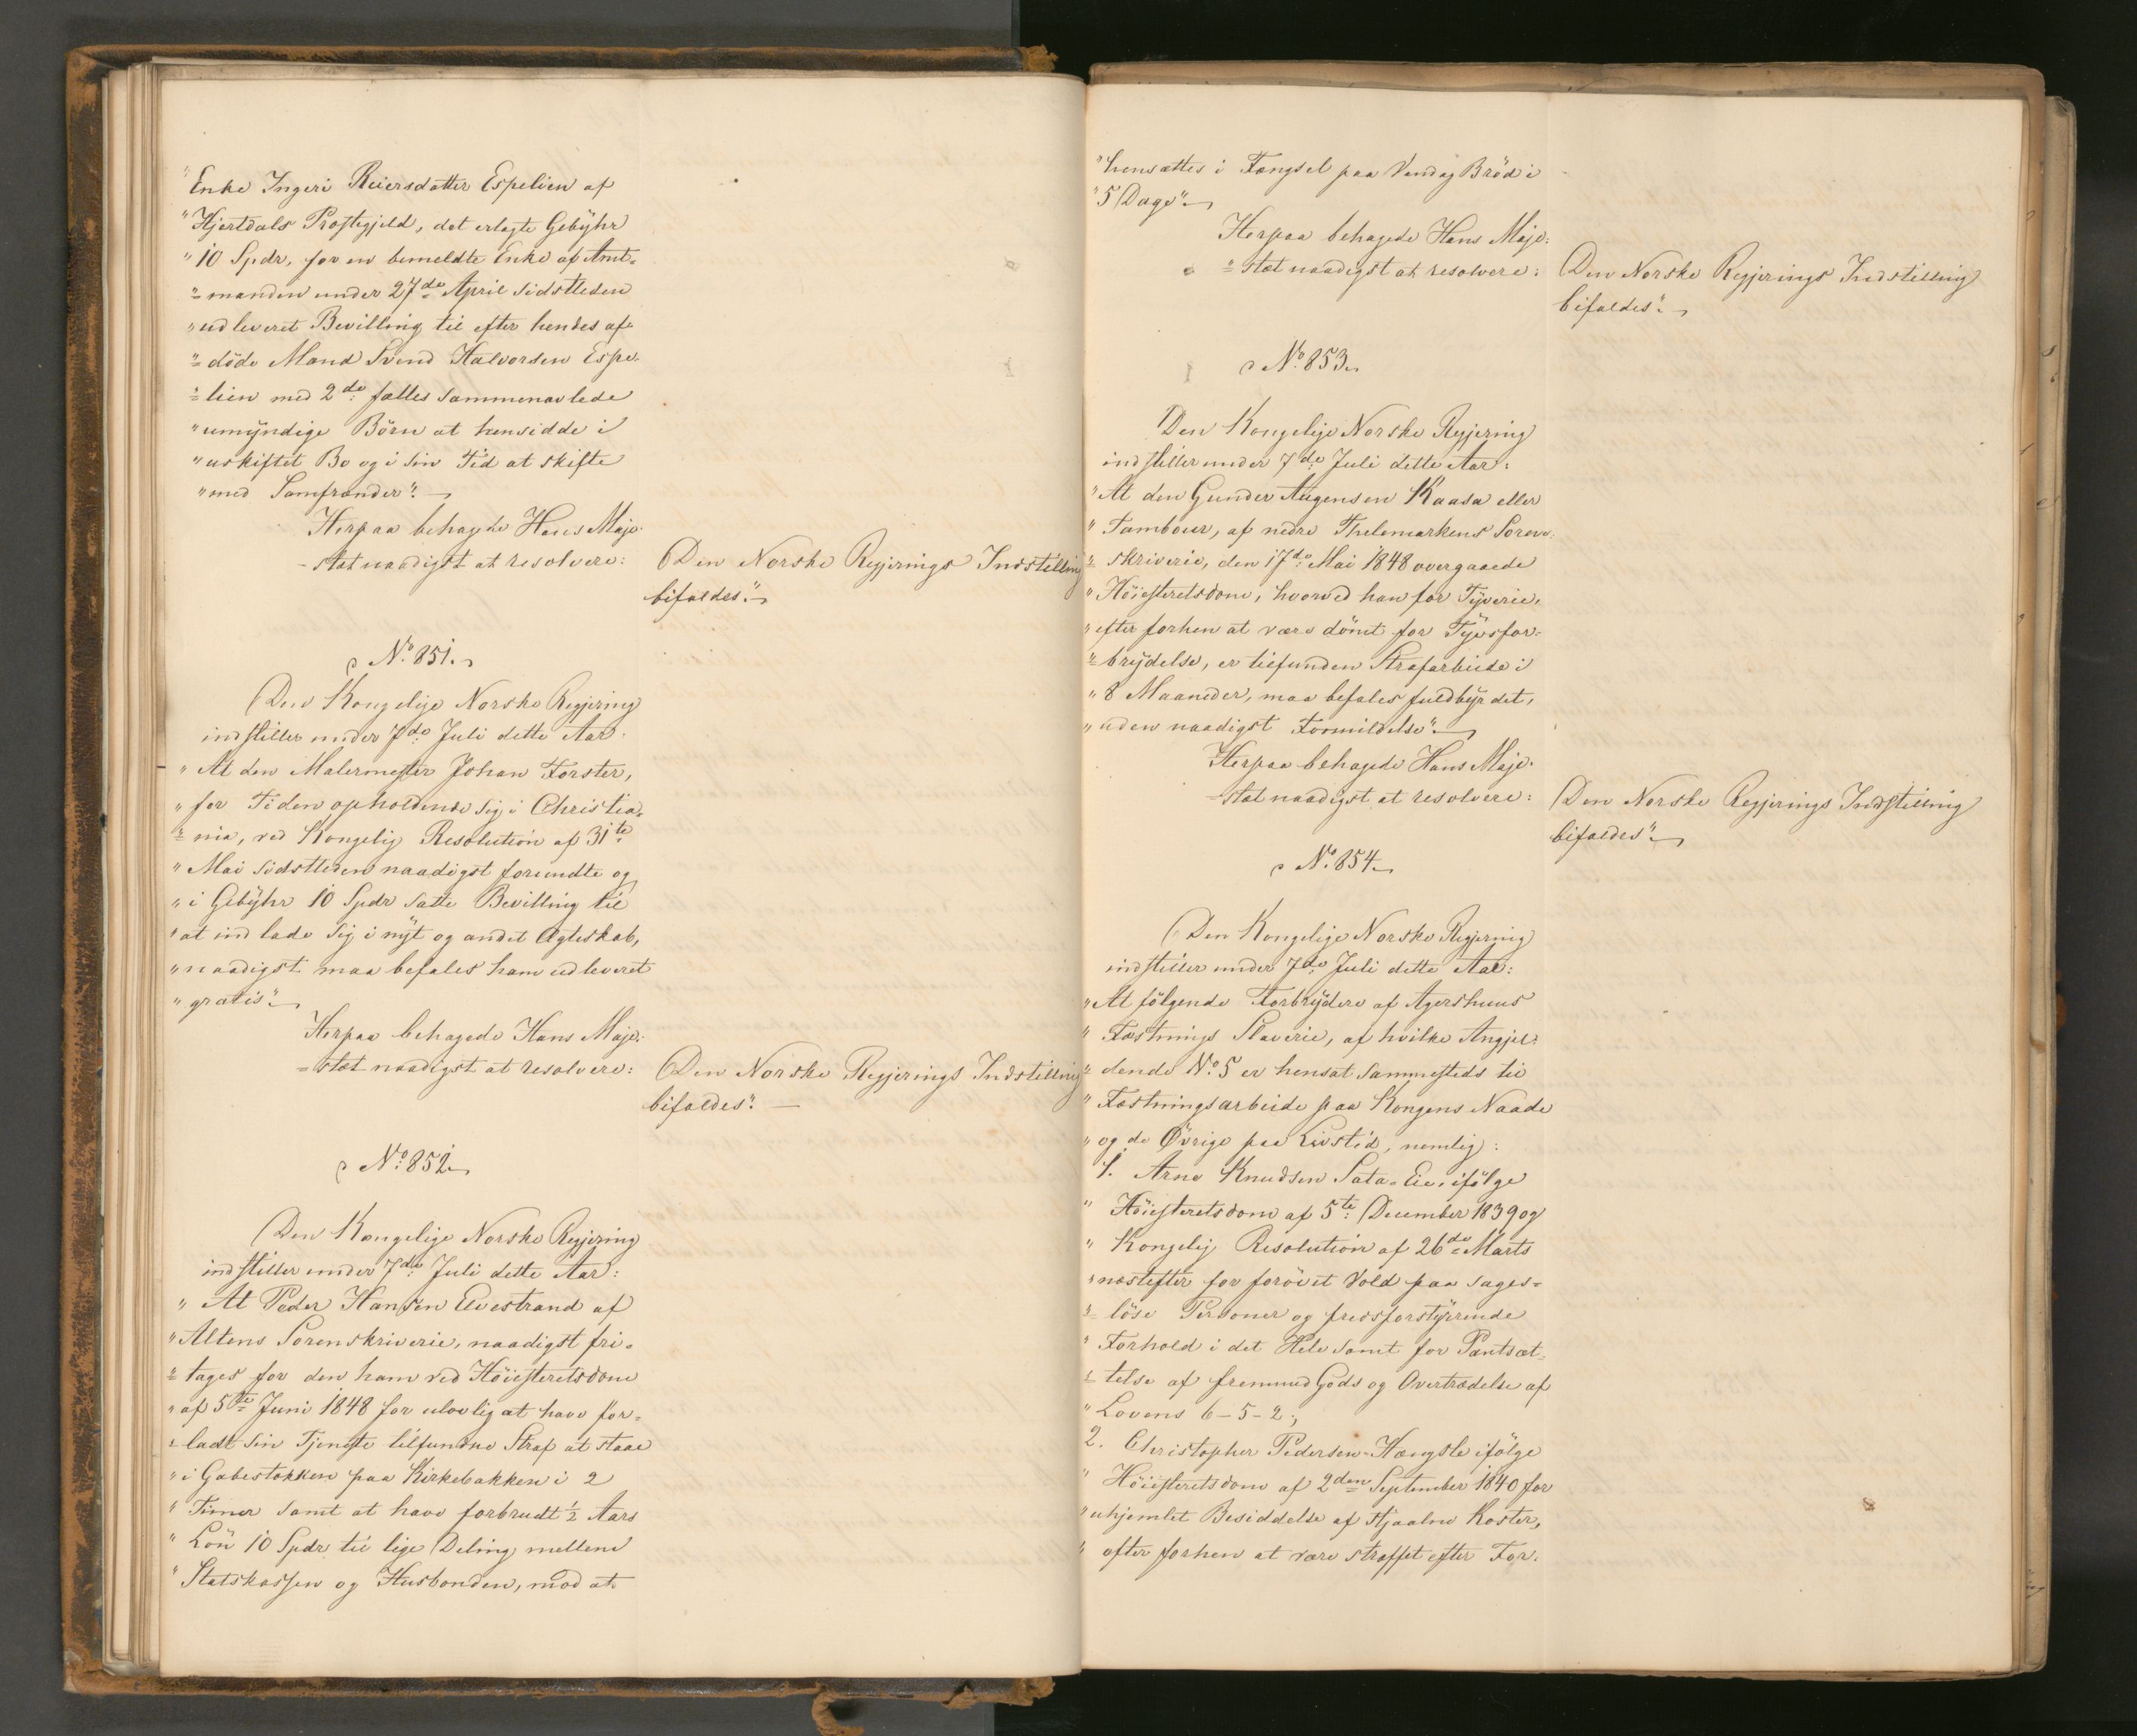 "Enke Ingeri Reiersdatter Espelien af
"Hjertdals Præstegjeld, det erlagte Gebÿhr
"10 Spdr, for en bemeldte Enke af Amt-
"=manden under 27de April sidstleden
"udleveret Bevilling til efter hendes af-
"=döde Mand Svend Halvorsen Espe-
"=lien med 2de fælles sammenavlede
"umÿndige Börn at hensidde i
"uskiftet Bo og i sin Tid at skifte
"med Samfrænder".
Herpaa behagede Hans Maje-
=stæt naadigst at resolvere:
Den Norske Regjerings Indstilling
bifaldes".
No. 851.
Den Kongelige Norske Regjering
indstiller under 7de Juli dette Aar:
"At den Malermester Johan Forster,
"for Tiden opholdende sig i Christia-
"=nia, ved Kongelig Resolution af 31te
"Mai sidstleden naadigst forundte og
"i Gebÿhr 10 Spdr satte Bevilling til
"at indlade sig i nÿt og andet Ægteskab,
"naadigst maa befales ham udleveret
"gratis".
Herpaa behagede Hans Maje-
=stæt naadigst at resolvere:
Den Norske Regjerings Indstilling
bifaldes".
No. 852.
Den Kongelige Norske Regjering
indstiller under 7de Juli dette Aar:
"At Peder Hansen Elvestrand af
"Altens Sorenskriverie, naadigst fri-
"=tages for den ham ved Höiesteretsdom
"af 5te Juni 1848 for ulovlig at have for-
"=ladt sin Tjeneste tilfundne Straf at staae
"i Gabestokken paa Kirkebakken i 2
"Timer samt at have forbrudt ½ Aars
"Lön 10 Spdr til lige Deling mellem
"Statskassen og Husbonden, mod at
"hensættes i Fængsel paa Vand og Bröd i
"5 Dage".
Herpaa behagede Hans Maje-
=stæt naadigst at resolvere:
Den Norske Regjerings Indstilling
bifaldes".
No. 853.
Den Kongelige Norske Regjering
indstiller under 7de Juli dette Aar:
"At den Gunder Augensen Kaasa eller
"Tambour, af nedre Thelemarkens Soren-
"=skriverie, den 17de Mai 1848 overgaaede
"Höiesteretsdom, hvorved han for Tÿverie,
"efter forhen at være dömt for Tÿvsfor-
"=brÿdelse, er tilfunden Strafarbeide i
"8 Maaneder, maa befales fuldbyrdet,
"uden naadigst Formildelse".
Herpaa behagede Hans Maje-
=stæt naadigst at resolvere:
Den Norske Regjerings Indstilling
bifaldes".
No. 854.
Den Kongelige Norske Regjering
indstiller under 7de Juli dette Aar:
"At fölgende Forbrÿdere af Agershuus
"Fæstnings Slaverie, af hvilke Angjel-
"dende No. 5 er hensat sammesteds til
"Fæstningsarbeide paa Kongens Naade
"og de Övrige paa Livstid, nemlig:
1. Arne Knudsen Sata-Eie, ifölge
"Höiesteretsdom af 5te December 1839 og
"Kongelig Resolution af 26de Marts
"næstefter for forövet Vold paa sages-
"=löse Personer og fredsforstÿrrende
"Forhold i det Hele samt for Pantsæt-
"=telse af fremmed Gods og Overtrædelse af
"Lovens 6-5-2;
2. Christopher Pedersen-Hængsle ifölge
"Höiesteretsdom af 2den September 1840 for
"uhjemlet Besiddelse af stjaalne Koster,
"efter forhen at være straffet efter For-